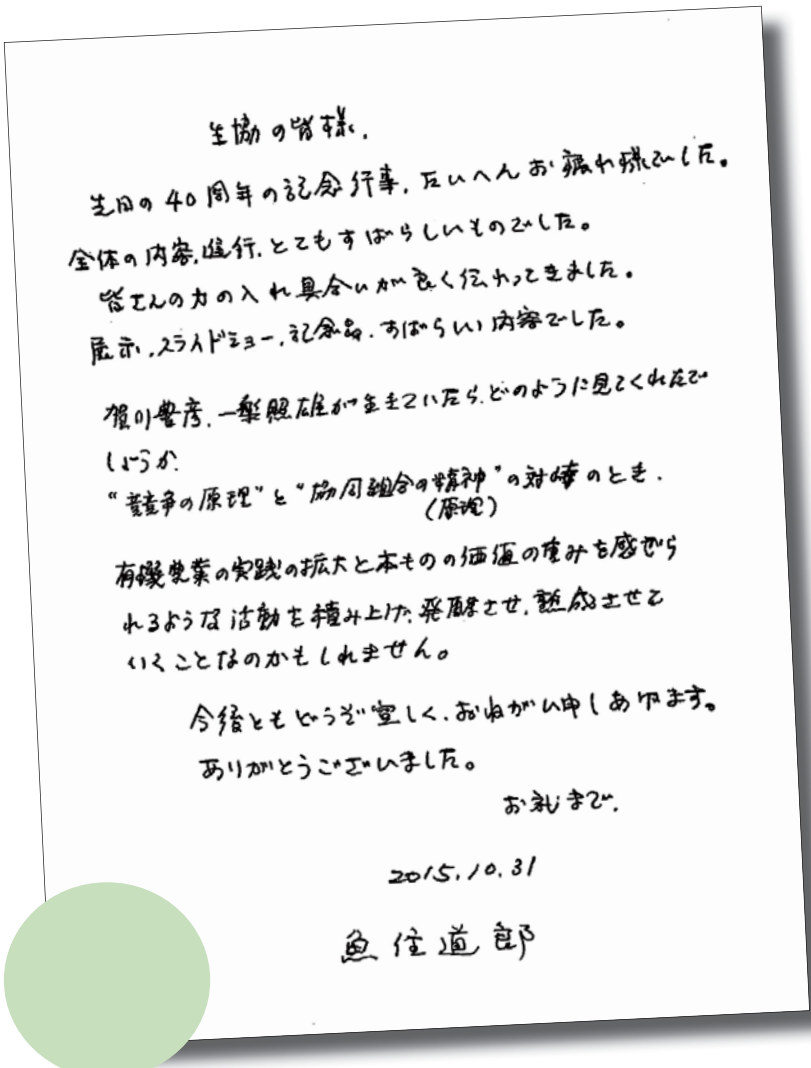 生協の皆様、
先日の40周年の記念行事、たいへんお疲れ様でした。
全体の内容、進行、とてもすばらしいものでした。
皆さんの力の入れ具合いが良く伝わってきました。
展示、スライドショー、記念品、すばらしい内容でした。
賀川豊彦、一楽照雄が生きていたら、どのように見てくれたで
しょうか。
“競争の原理”と“協同組合の精神”の対峙のとき、
(原理)
有機農業の実践の拡大と本ものの価値の重みを感ぜら
れるような活動を積み上げ、発酵させ、熟成させて
いくことなのかもしれません。
今後ともどうぞ宜しく、おねがい申しあげます。
ありがとうございました。
お礼まで、
2015.10.31
魚住道郎